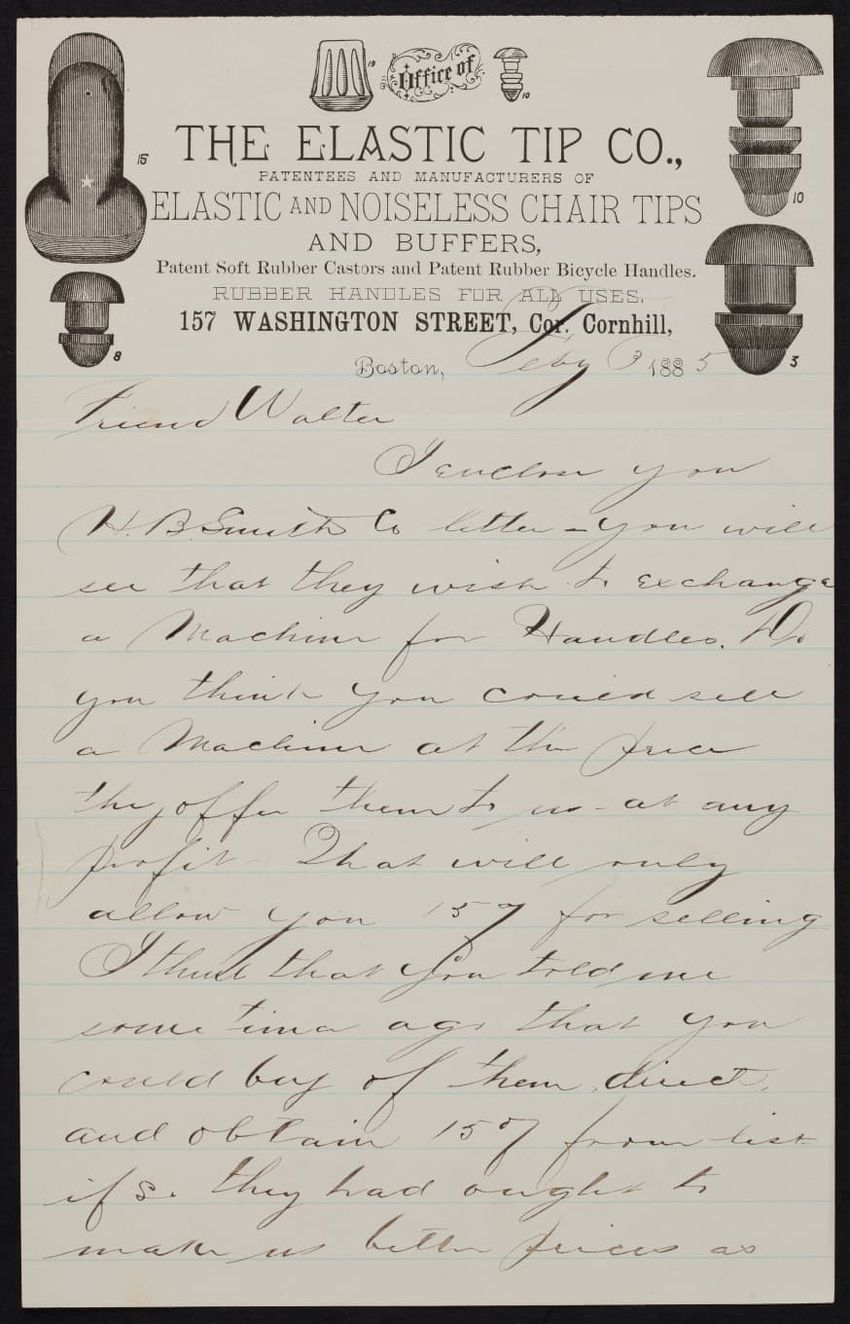 Office of
THE ELASTIC TIP CO.,
PATENTEES AND MANUFACTURERS OF
ELASTIC AND NOISELESS CHAIR TIPS
AND BUFFERS,
Patent Soft Rubber Castors and Patent Rubber Bicycle Handles.
RUBBER HANDLES FOR ALL USES.
157 WASHINGTON STREET, Cor. Cornhill,
Boston, Feby 1885
15
19
10
10
8
3
Friend Walter
I enclose you
H. B. Smith Co letter - you will
see that they wish to exchange
a Machine for Handles. Do
you think you could sell
a Machine at the price
they offer them to us - at any
profit - That will only
allow you 15% for selling
I think that you told me
some time ago that you
could buy of them direct,
and obtain 15% from list
if so they had ought to
make us better prices as